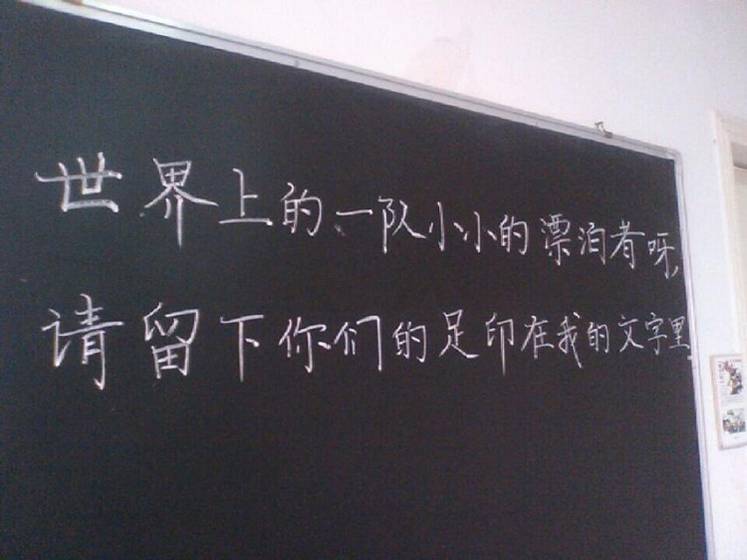 世界上的一队小小的漂泊者呀,
请留下你们的足印在我的文字里.